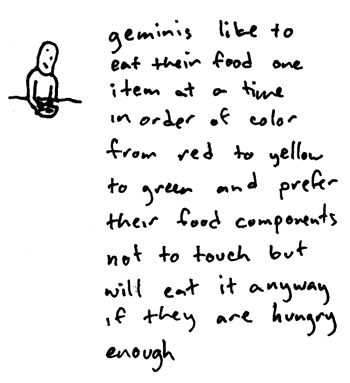 geminis like to
eat their food one
item at a time
in order of color
from red to yellow
to green and prefer
their food components
not to touch but
will eat it anyway
if they are hungry
enough